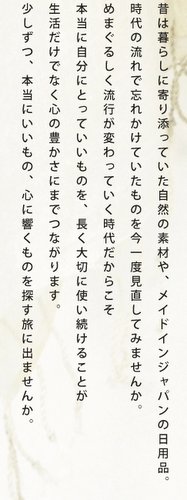 昔は暮らしに寄り添っていた自然の素材や、メイドインジャパンの日用品。
時代の流れで忘れかけていたものを今一度見直してみませんか。
めまぐるしく流行が変わっていく時代だからこそ
本当に自分にとっていいものを、長く大切に使い続けることが
生活だけでなく心の豊かさにまでつながります。
少しずつ、本当にいいもの、心に響くものを探す旅に出ませんか。